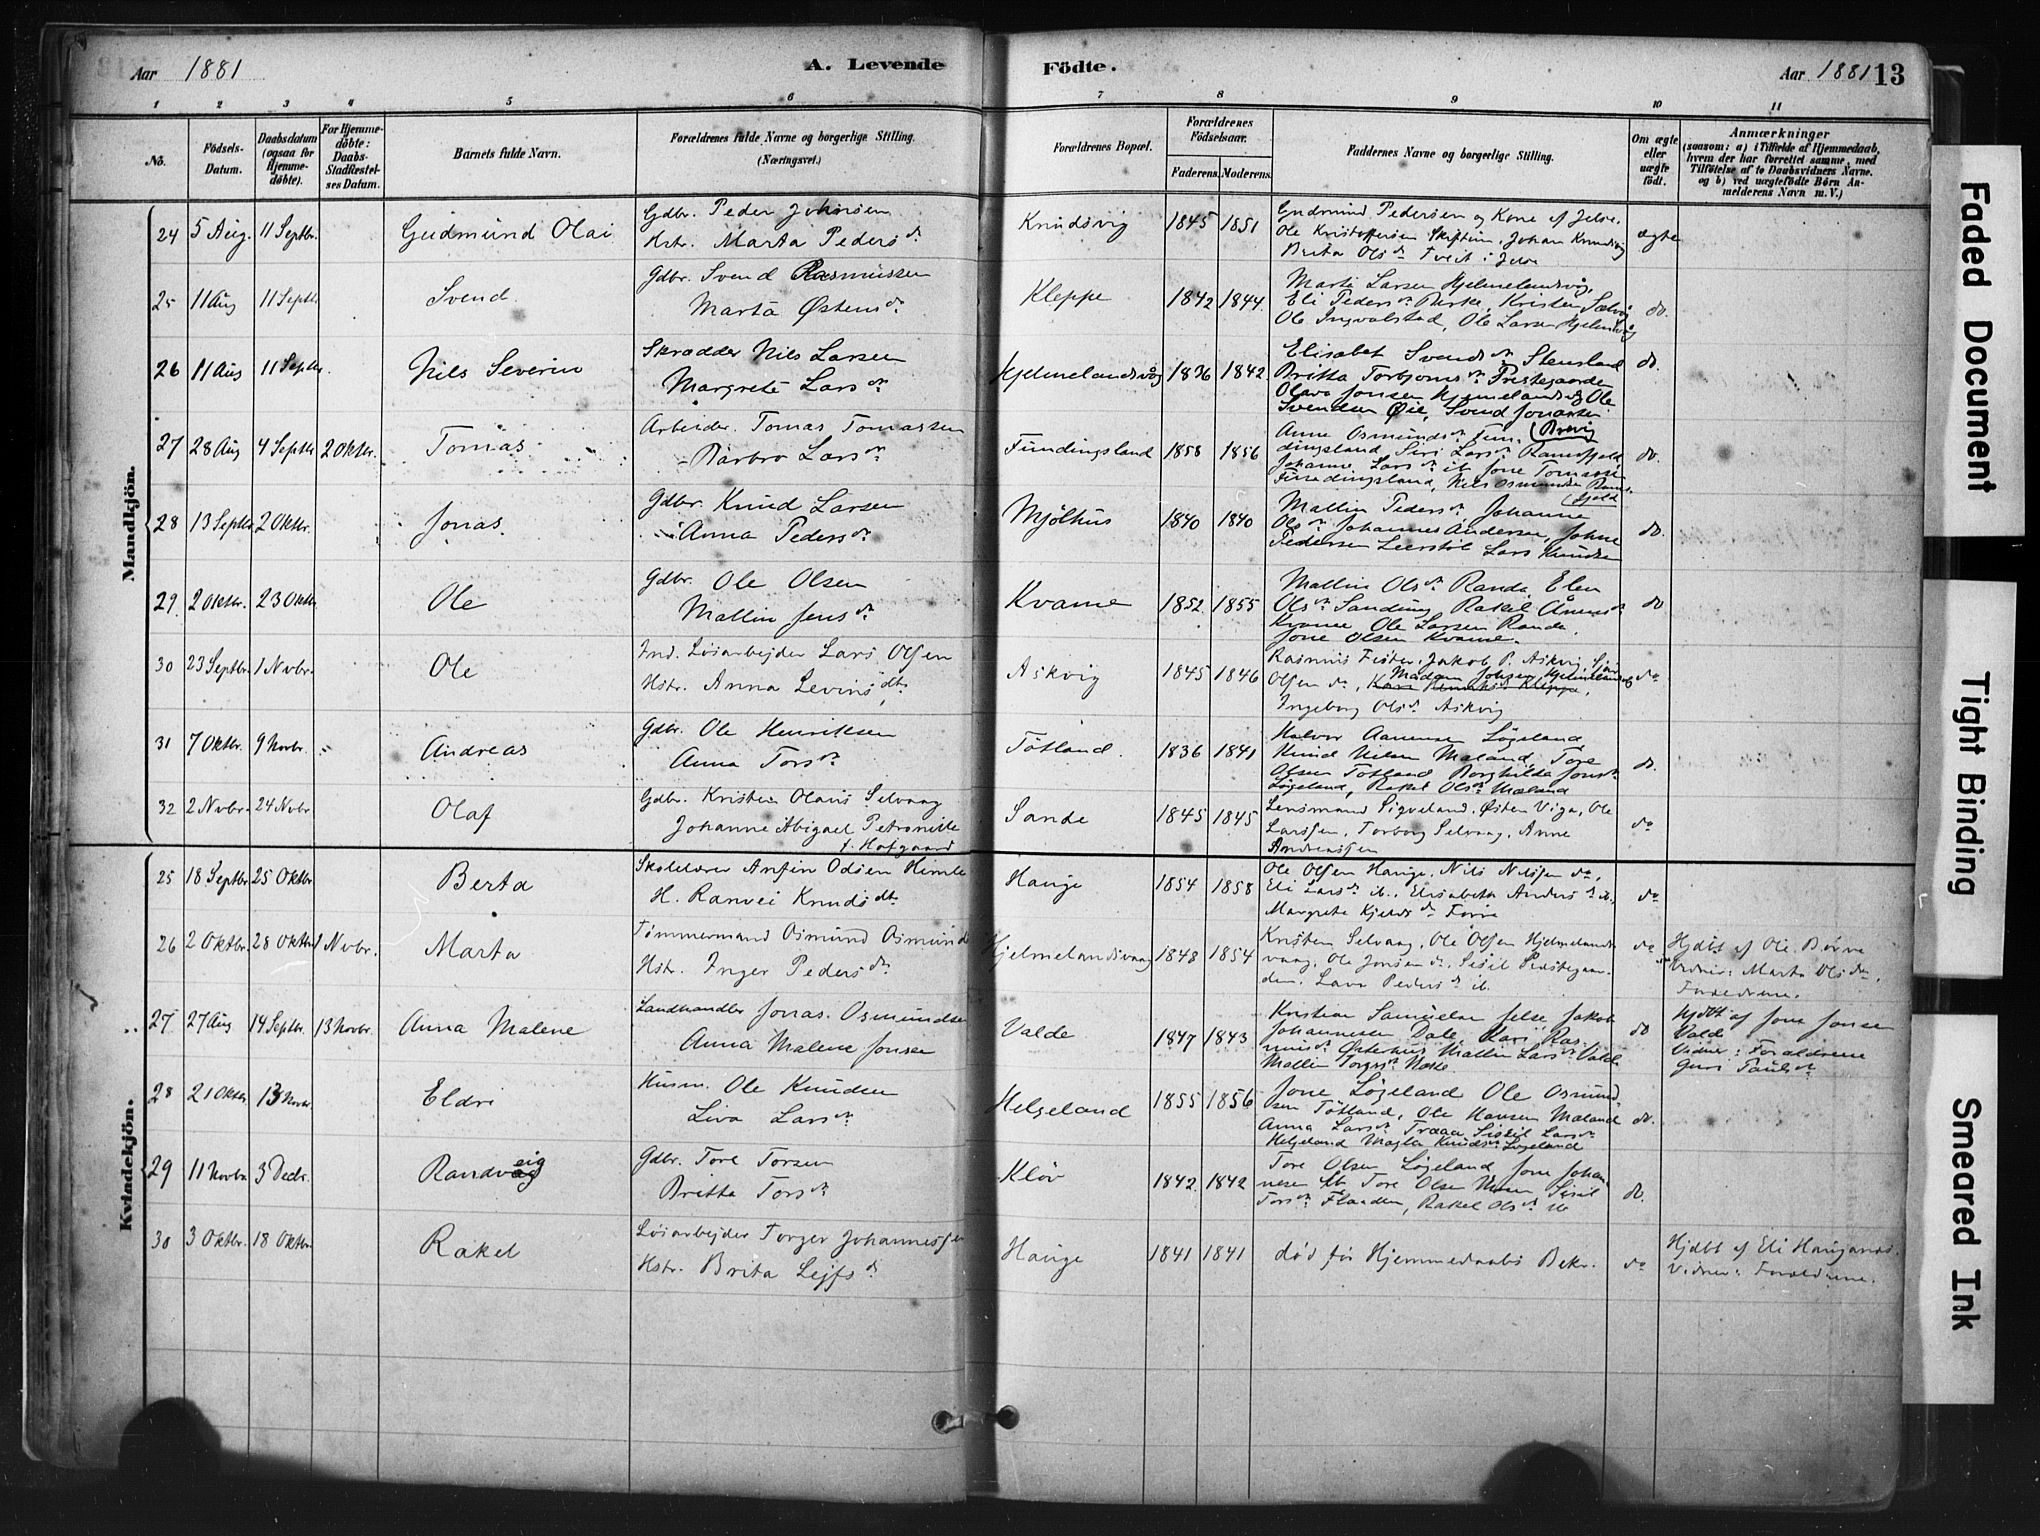 Aar 1881
A. Levende
Födte.
Aar 1881
13
1 2 3 4 5 6 7 8 9 10 11
No.
Födsels-Datum.
Daabsdatum (ogsaa for Hjemme-döbte).
For Hjemme-döbte: Daabs-Stadfæstel-ses Datum.
Barnets fulde Navn.
Forældrenes fulde Navne og borgerlige Stilling. (Næringsvei.)
Forældrenes Bopæl.
Forældrenes Födselsaar.
Faderens. Moderens.
Faddernes Navne og borgerlige Stilling.
Om ægte eller uægte födt.
Anmærkninger
(saasom: a) i Tilfælde af Hjemmedaab, hvem der har forrettet samme, med Tilföielse af to Daabsvidners Navne. og b) ved uægtefödte Börn An-melderens Navn m. V.)
Mandkjön.
24 5 Aug. 11 Septbr. Gudmund Olai
Gdbr. Peder Johnsen
Hstr. Marta Pedersdr
Knudsvig 1845 1851
Gudmund Pedersen og Kone af Jelse.
Ole Kristoffersen Skiftun, Johan Knudsvig
Brita Olsdr Tveit i Jelse
ægte
25 11 Aug 11 Septbr Svend
Gdbr. Svend Rasmussen
Marta Østensdr
Kleppe 1842 1844
Marta Larsen Hjelmelandsvåg,
Eli Pedersdr Birke, Kristen Selvåg
Ole Ingvalstad, Ole Larsen Hjelmelvåg
do.
26 11 Aug 11 Septbr Nils Severin
Skrædder Nils Larsen
Margrete Larsdr
Hjelmelandsvåg 1836 1842
Elisabet Svendsdr Stensland
Britta Torbjornsdr Prestegaarden
Olava Jonsen Hjelmelandsvåg Ole
Svendsen Øie, Svend Jonassen
do.
27 28 Aug 4 Septbr 2 Oktbr. Tomas
Arbeider. Tomas Tomassen
Barbro Larsdr
Fundingsland 1858 1856
Anne Osmundsdr Fun-
dingsland, Siri Larsdr Ramsfjeld
Johanne Larsdr ib Jone Tomassen
Fundingsland, Nils Osmundsen Rams-
fjeld
do.
28 13 Septbr 2 Oktbr. Jonas
Gdbr. Knud Larsen
Anna Pedersdr
Mjölhus 1840 1840
Mallin Pedersdr Johanne
Olsdr Johannes Andersen, Johne
Pedersen Leerstöl Lars Knudsen
do.
29 2 Oktbr. 23 Oktbr Ole
Gdbr. Ole Olsen
Mallin Jensdr
Kvame 1852 1855
Mallin Olsdr Randa, Elen
Olsdr Sanding Rakel Åmunsdr
Kvame Ole Larsen Randa.
Jone Olsen Kvame.
do
30 23 Septbr. 1 Nvbr. Ole
Ind. Løsarbejder Lars Olsen
Hstr. Anna Levinsdtr
Askvig 1845 1846
Rasmus Fister, Jakob P. Askvig,
Olsen do, Madam Johsen Hjelmelandsv
Ingeborg Olsdr Askvig
do
31 7 Oktbr. 9 Novbr. Andreas
Gdbr. Ole Henriksen
Anna Torsdr
Tötland. 1836 1841
Halvor Aamunsen Løgeland
Knud Nilsen Mæland, Tore
Olsen Tötland Borghilda Jonsdr
Løgeland, Rakel Olsdr Mæland
do.
32 2 Nvbr. 24 Nvbr Olaf
Gdbr. Kristen Olaus Selvaag
Johanne Abigael Petronille
f. Hofgaard
Sande 1845 1845
Lensmand Sigveland, Østen Viga, Ole
Larssen, Torborg Selvaag, Anne
Andreassen
do
Kvindekjön.
25 18 Septbr 25 Oktbr Berta
Skolelærer Anfin Odsen Himle
H. Ranvei Knudsdtr
Hauge 1854 1858
Ole Olsen Hauge, Nils Nilssen do,
Eli Larsdr ib., Elisabeth Andersdr ib.,
Margrete Kjeldsdr Førre
do
26 2 Oktbr. 28 Oktbr 1 Nvbr. Marta
Tømmermand Osmund Osmundsen
Hstr. Inger Pedersdr
Hjelmelandsvaag 1848 1854
Kristen Selvaag, Ole Olsen Hjelmelands-
vaag, Ole Jonsen do, Sisil Prestegaar-
den. Lava Pedersdr ib.
do
Hjdbt af Ole Børve
Vidner: Marta Olsdr
Forældrene.
27 27 Aug 14 Septbr. 13 Novbr. Anna Malene
Landhandler Jonas Osmundsen
Anna Malene Jonsen
Valde 1847 1843
Kristian Samuelsen Jelse Jakob
Johannesen Dale, Kari Ras-
musdr Østerhus Mallin Larsdr Valde
Mallin Torgersdr Næsse
do
Hjdbt af Jone Jonsen
Valde
Vidner: Forældrene
Guri Paulsdr
28 21 Oktbr. 13 Novbr. Eldri
Husm. Ole Knudsen
Liva Larsdr
Helgeland 1855 1856
Jone Løgeland Ole Osmund-
sen Tötland, Ole Hansen Mæland
Anna Larsdr Træaa Sissil Larsdr
Helgeland Magla Knudsdr Løgeland
do.
29 11 Novbr 3 Decbr. Randveig
Gdbr. Tore Torsen
Britta Torsdr
Kløv 1842 1842
Tore Olsen Løgeland Jone Johan-
nesen ib Tore Olsen Moen Sisil
Torsdr Flanden, Rakel Olsdr ib
do.
30 3 Oktbr. 18 Oktbr. Rakel
Løsarbejder Torger Johannessen
Hstr. Brita Lejfsdr
Hauge 1841 1841
død før Hjemmedaabs Bekr.
do
Hjdbt af Eli Haugaas.
Vidner: Forældrene.
Faded Document
Tight Binding
Smeared Ink